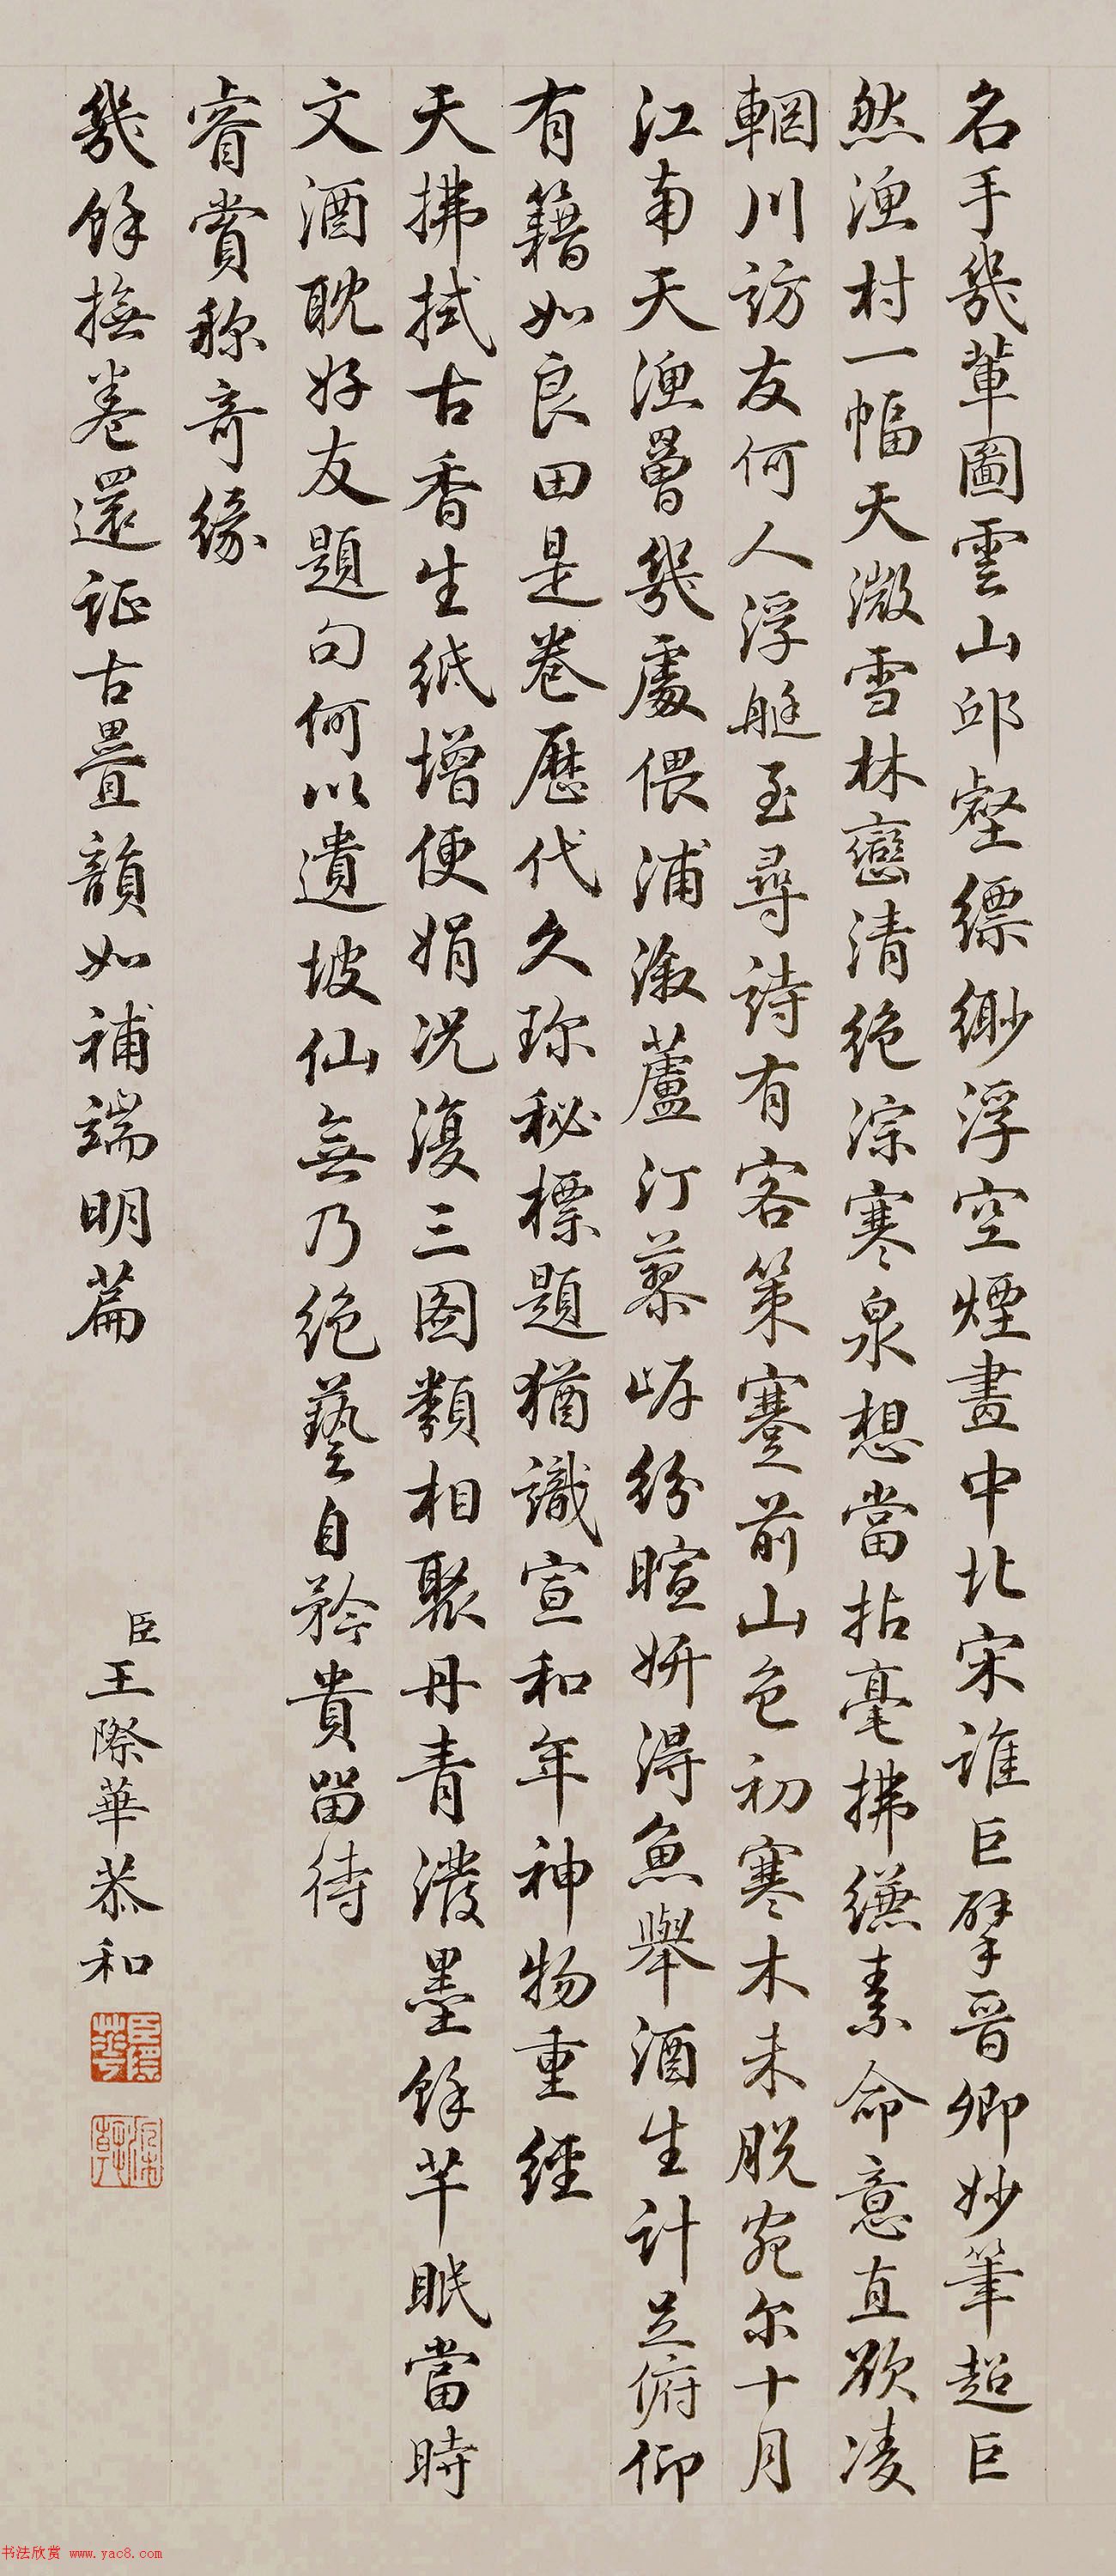 名手幾輩圖雲山邱壑縹緲浮空煙畫中北宋誰巨擘晉卿妙筆超巨
然漁村一幅天微雪林巒清絕淙寒泉想當拈毫拂縑素命意直欲凌
輞川訪友何人浮艇至尋詩有客策蹇前山色初寒木未脫宛尔十月
江南天漁罾幾處偎浦漵蘆汀蓼㟁紛暄妍得魚舉酒生計足俯仰
有籍如良田是卷歷代久珍秘標題猶識宣和年神物重經
天拂拭古香生紙增便娟况復三图類相聚丹青潑墨餘芊眠當時
文酒耽好友題句何以遺坡仙無乃絕藝自矜貴留待
睿賞称奇緣
幾餘撫卷還证古疊韻如補端明篇
臣王際華恭和
臣際華
书法欣赏 www.yac8.com